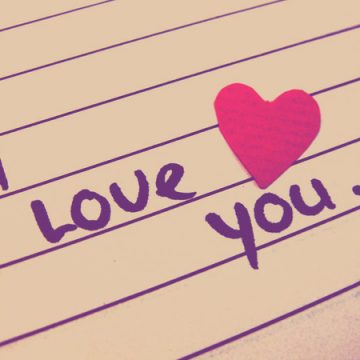 LOVE
you.